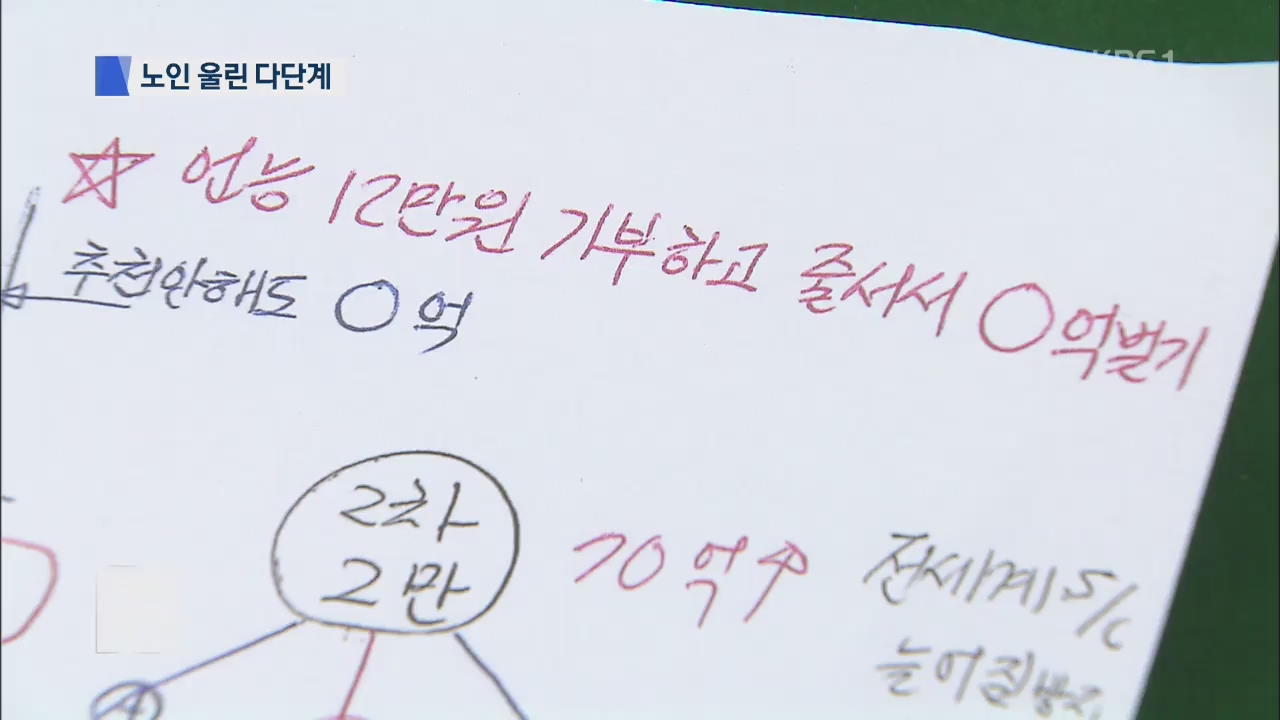 노인 울린 다단계
KBS 1
☆ 언능 12만원 기부하고 줄서서 ○억벌기
추천안해도 ○억
2차
2만
70억↑
전세계 S/C
늘어짐방지